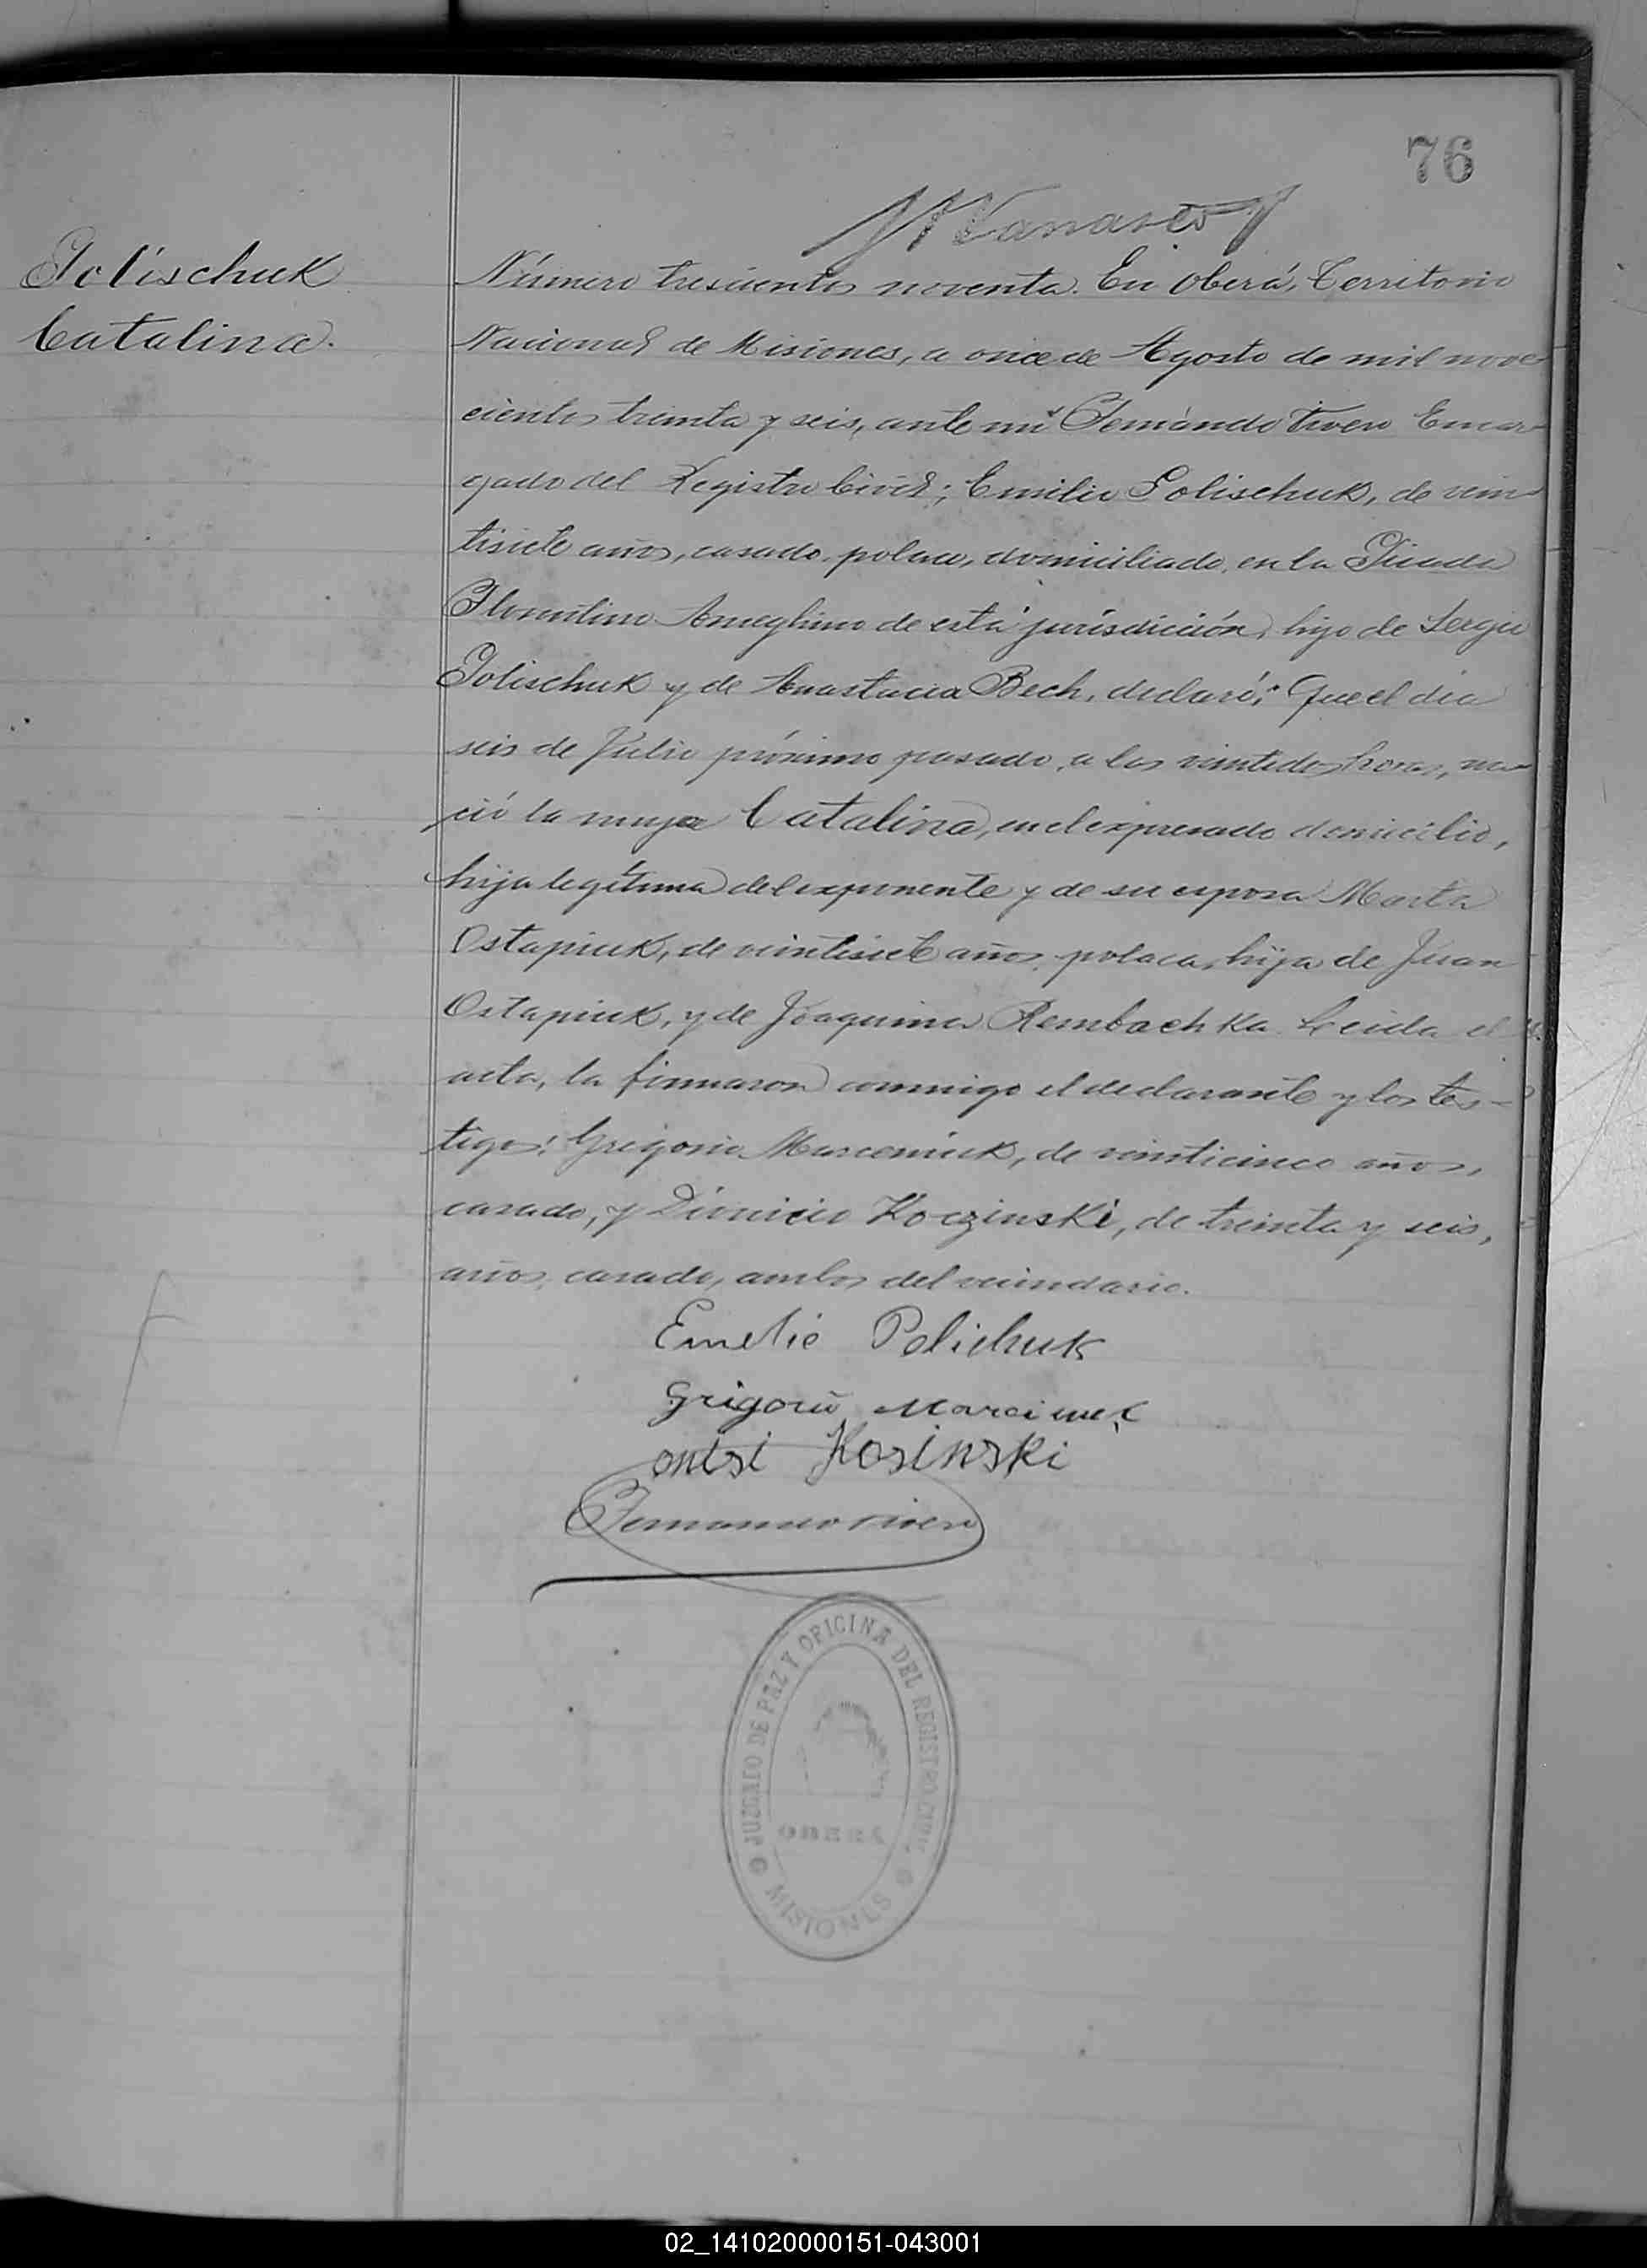 76
Polischuk
Catalina.
Número trescientos noventa. En Oberá, Territorio
Nacional de Misiones, a once de Agosto de mil nove-
cientos treinta y seis, ante mí Fernándo Rivero Encar-
gado del Registro Civil; Emilio Polischuk, de vein-
tisiete años, casado, polaco, domiciliado, en la Picada
Florentino Ameghino de esta jurisdicción, hijo de Sergio
Polischuk y de Anastacia Bech, declaró: Que el dia
seis de Julio próximo pasado, a las veintidos horas, na-
ció la mujer Catalina, en el expresado domicilio,
hija legítima del exponente y de su esposa Marta
Ostapiuk, de veintisiete años, polaca, hija de Juan
Ostapiuk, y de Joaquina Rembachka. Leida el
acta, la firmaron conmigo el declarante y los tes-
tigos: Grigorio Marceniuk, de veinticinco años,
casado, y Dionicio Koczinski, de treinta y seis,
años, casado, ambos del vecindario.
Emilio Polichuk
Grigorio
Kosinski
Fernando Rivero
JUZGADO DE PAZ Y OFICINA DEL REGISTRO CIVIL
OBERÁ
MISIONES
02_141020000151-043001